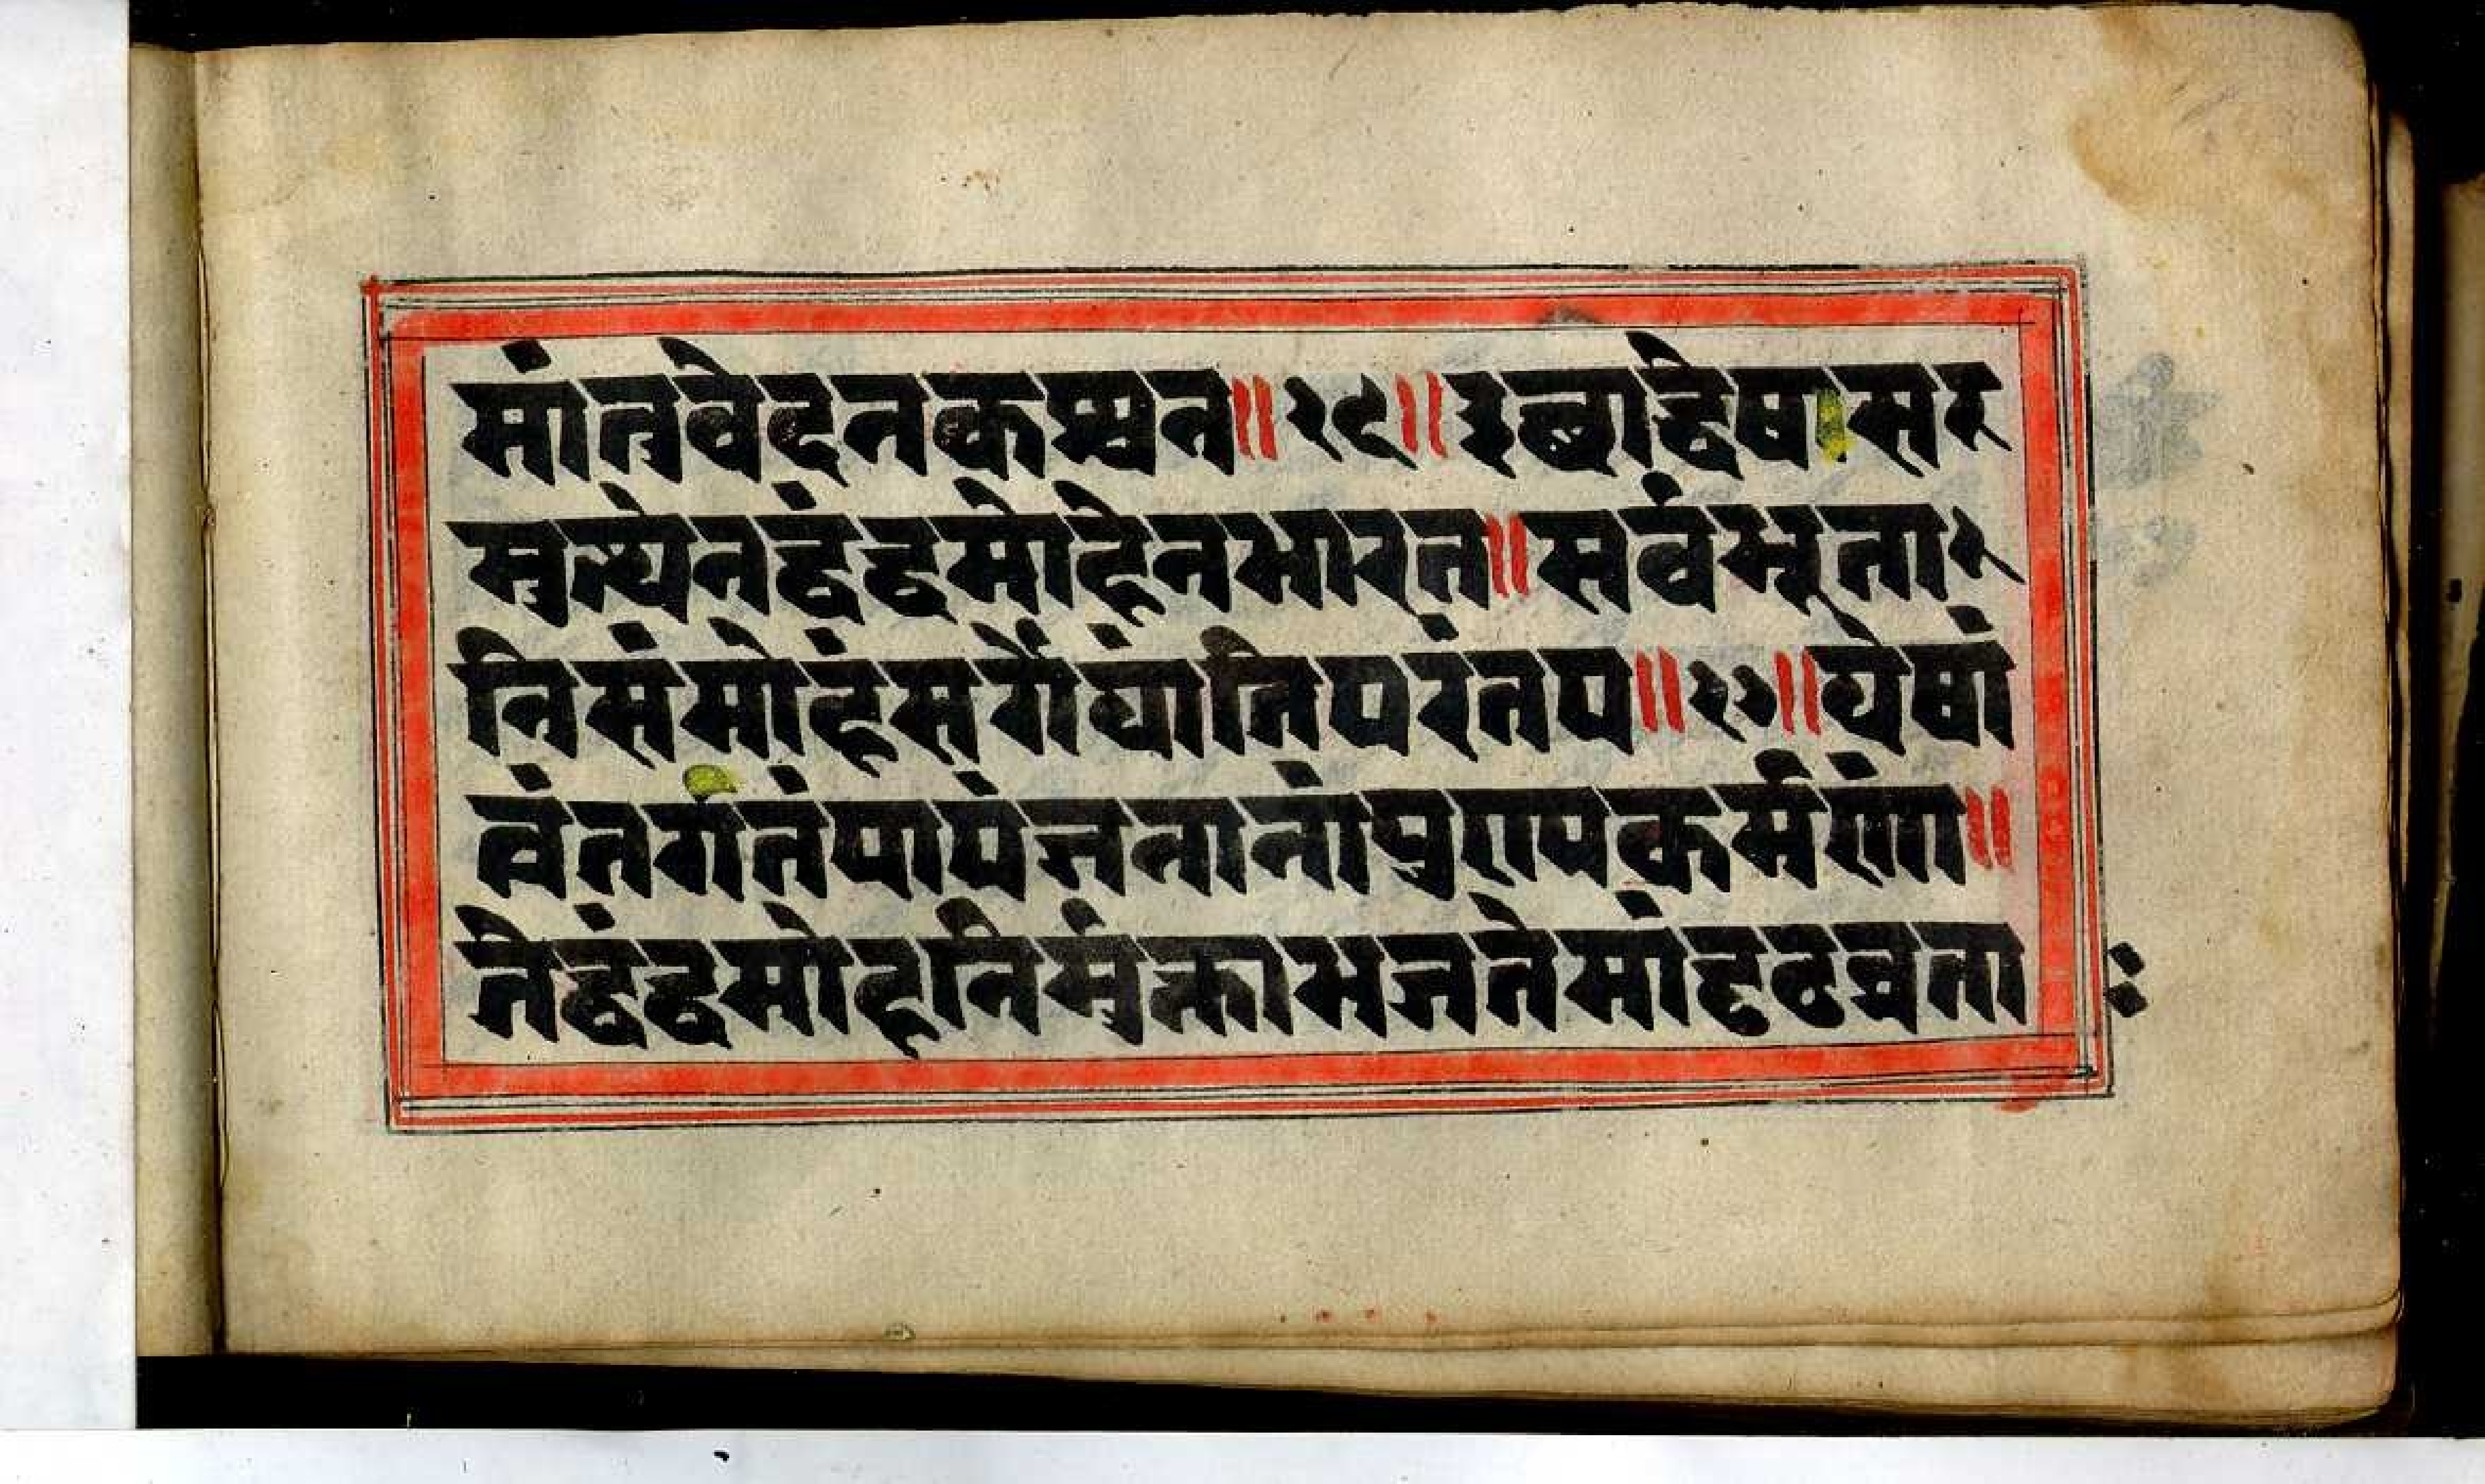 मांतुवेदनकश्चन॥२६॥इछाद्वेषसर
मुत्थेनद्वंद्वमोहेनभारत॥सर्वभूता२
निसंमोहंसर्गेयांतिपरंतप॥२७॥येषां
त्वंतर्गतंपापंजनानांपुण्यकर्मणां॥
तेद्वंद्वमोहनिर्मुक्ताभजंतेमांदृढव्रता
ः